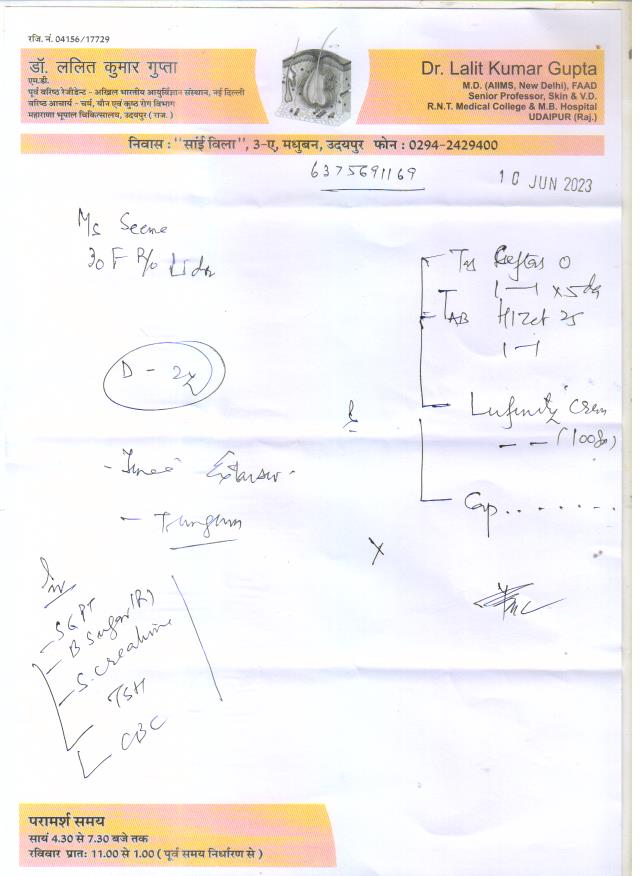 रजि. नं. 04156/17729
डॉ. ललित कुमार गुप्ता
एम.डी.
पूर्व वरिष्ठ रेजीडेन्ट - अखिल भारतीय आयुर्विज्ञान संस्थान, नई दिल्ली
वरिष्ठ आचार्य - चर्म, यौन एवं कुष्ठ रोग विभाग
महाराणा भूपाल चिकित्सालय, उदयपुर ( राज. )
Dr. Lalit Kumar Gupta
M.D. (AIIMS, New Delhi), FAAD
Senior Professor, Skin & V.D.
R.N.T. Medical College & M.B. Hospital
UDAIPUR (Raj.)
निवास : "सांई विला", 3-ए, मधुबन, उदयपुर फोन : 0294-2429400
6375691169
10 JUN 2023
Ms Seema
30 F R/o
D - 2
Tab
1-1 x5
TAB HIZet 25
1-1
Cream
Cap........
SGPT
B Sugar (R)
S. Creatinine
TSH
CBC
परामर्श समय
सायं 4.30 से 7.30 बजे तक
रविवार प्रातः 11.00 से 1.00 ( पूर्व समय निर्धारण से )